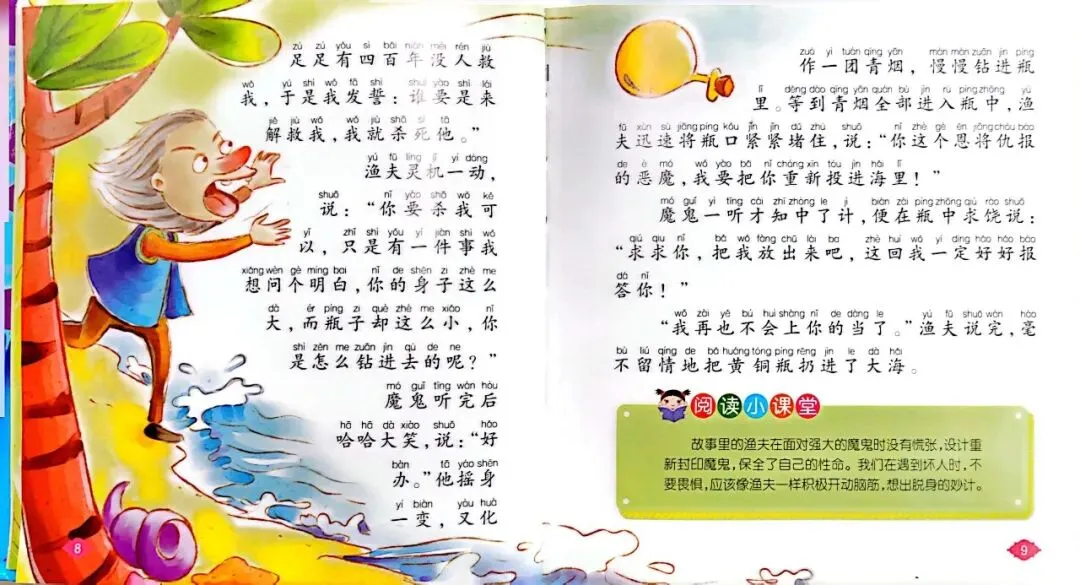 zú zú yǒu sì bǎi nián méi rén jiù
足足有四百年没人救
wǒ yú shì wǒ fā shì shuí yào shì lái
我，于是我发誓：谁要是来
jiě jiù wǒ wǒ jiù shā sǐ tā
解救我，我就杀死他。”
yú fū líng jī yí dòng
渔夫灵机一动，
shuō nǐ yào shā wǒ kě
说：“你要杀我可
yǐ zhǐ shì yǒu yí jiàn shì wǒ
以，只是有一件事我
xiǎng wèn gè míng bai nǐ de shēn zi zhè me
想问个明白，你的身子这么
dà ér píng zi què zhè me xiǎo nǐ
大，而瓶子却这么小，你
shì zěn me zuān jìn qù de ne
是怎么钻进去的呢？”
mó guǐ tīng wán hòu
魔鬼听完后
hā hā dà xiào shuō hǎo
哈哈大笑，说：“好
bàn tā yáo shēn
办。”他摇身
yí biàn yòu huà
一变，又化
8
zuò yì tuán qīng yān màn màn zuān jìn píng
作一团青烟，慢慢钻进瓶
lǐ děng dào qīng yān quán bù jìn rù píng zhōng yú
里。等到青烟全部进入瓶中，渔
fū xùn sù jiāng píng kǒu jǐn jǐn dǔ zhù shuō nǐ zhè gè ēn jiāng chóu bào
夫迅速将瓶口紧紧堵住，说：“你这个恩将仇报
de è mó wǒ yào bǎ nǐ chóng xīn tóu jìn hǎi lǐ
的恶魔，我要把你重新投进海里！”
mó guǐ yì tīng cái zhī zhòng le jì biàn zài píng zhōng qiú ráo shuō
魔鬼一听才知中了计，便在瓶中求饶说：
qiú qiú nǐ bǎ wǒ fàng chū lái ba zhè huí wǒ yí dìng hǎo hǎo bào
“求求你，把我放出来吧，这回我一定好好报
dá nǐ
答你！”
wǒ zài yě bú huì shàng nǐ de dàng le yú fū shuō wán háo
“我再也不会上你的当了。”渔夫说完，毫
bù liú qíng de bǎ huáng tóng píng rēng jìn le dà hǎi
不留情地把黄铜瓶扔进了大海。
阅读小课堂
故事里的渔夫在面对强大的魔鬼时没有慌张，设计重
新封印魔鬼，保全了自己的性命。我们在遇到坏人时，不
要畏惧，应该像渔夫一样积极开动脑筋，想出脱身的妙计。
9